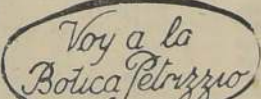 Voy a la
Botica Petrizzio